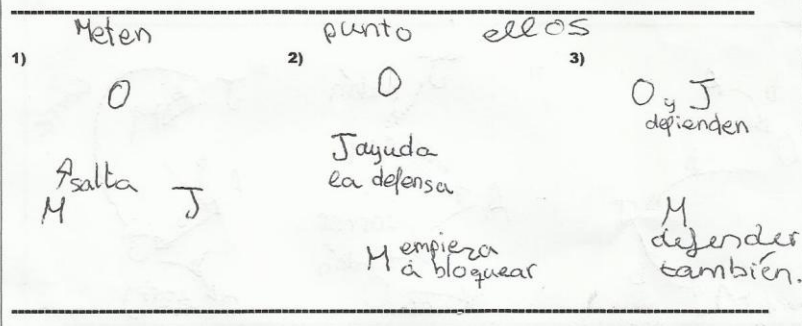 Meten punto ellos
1)
O
salta
M
J
2)
O
J ayuda
la defensa
M empieza
a bloquear
3)
O y J
defienden
M
defender
también.